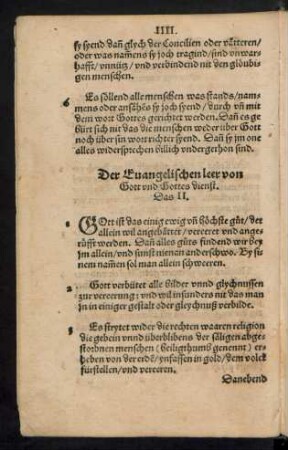 IIII.
sy syend dañ glych der Concilien oder vätteren/
oder was namens sy joch tragind/sind vnwar-
hafft/vnnütz/vnd verbindend nit den glöubi-
gen menschen.
6 Es söllend alle menschen was stands/nam-
mens oder ansähēs sy joch syend/durch vñ mit
dem wort Gottes gerichtet werden. Dañ es ge-
bürt sich nit das die menschen weder über Gott
noch über sin wort richter syend. Dañ sy jm one
alles widersprechen billich vndergethon sind.
Der Euangelischen leer von
Gott vnd Gottes dienst.
Das II.
1 GOtt ist das einig ewig vñ höchste gůt/der
allein wil angebättet/vereeret vnd ange-
rüfft werden. Dañ alles gůts findend wir bey
jm allein/vnd sunst nienan anderschwo. By si-
nem nam̃en sol man allein schweeren.
2 Gott verbütet alle bilder vnnd glychnussen
zur vereerung: vnd wil insunders nit das man
jn in einiger gestalt oder gleychnuß verbilde.
3 Es strytet wider die rechten waaren religion
die gebein vnnd überblibens der säligen abge-
storbnen menschen (Heiligthumb genennt) er-
heben von der erdē/ynfassen in gold/dem volck
fürstellen/vnd vereeren.
Danebend